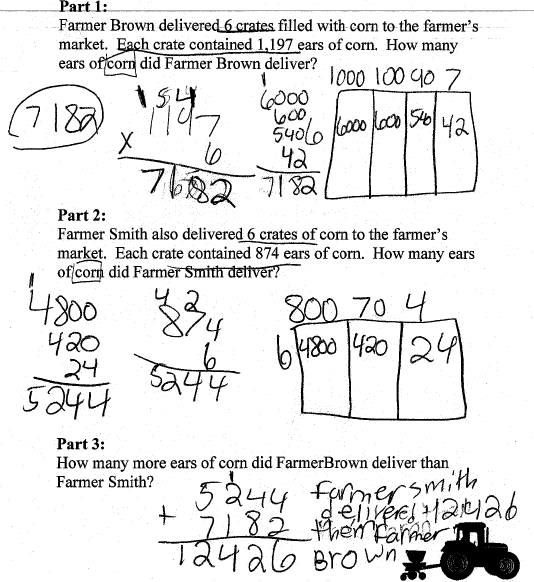 Part 1:
Farmer Brown delivered 6 crates filled with corn to the farmer's
market. Each crate contained 1,197 ears of corn. How many
ears of corn did Farmer Brown deliver?
1000 100 90 7
6000 600 540 42
7182
1 5 4
1197
x 6
7182
1
6000
600
540
6
42
7182
Part 2:
Farmer Smith also delivered 6 crates of corn to the farmer's
market. Each crate contained 874 ears of corn. How many ears
of corn did Farmer Smith deliver?
1
4800
420
24
5244
4 2
874
6
5244
800 70 4
6 4800 420 24
Part 3:
How many more ears of corn did FarmerBrown deliver than
Farmer Smith?
1
5244
+ 7182
12426
farmer smith
delivered 12426
then farmer
Brown